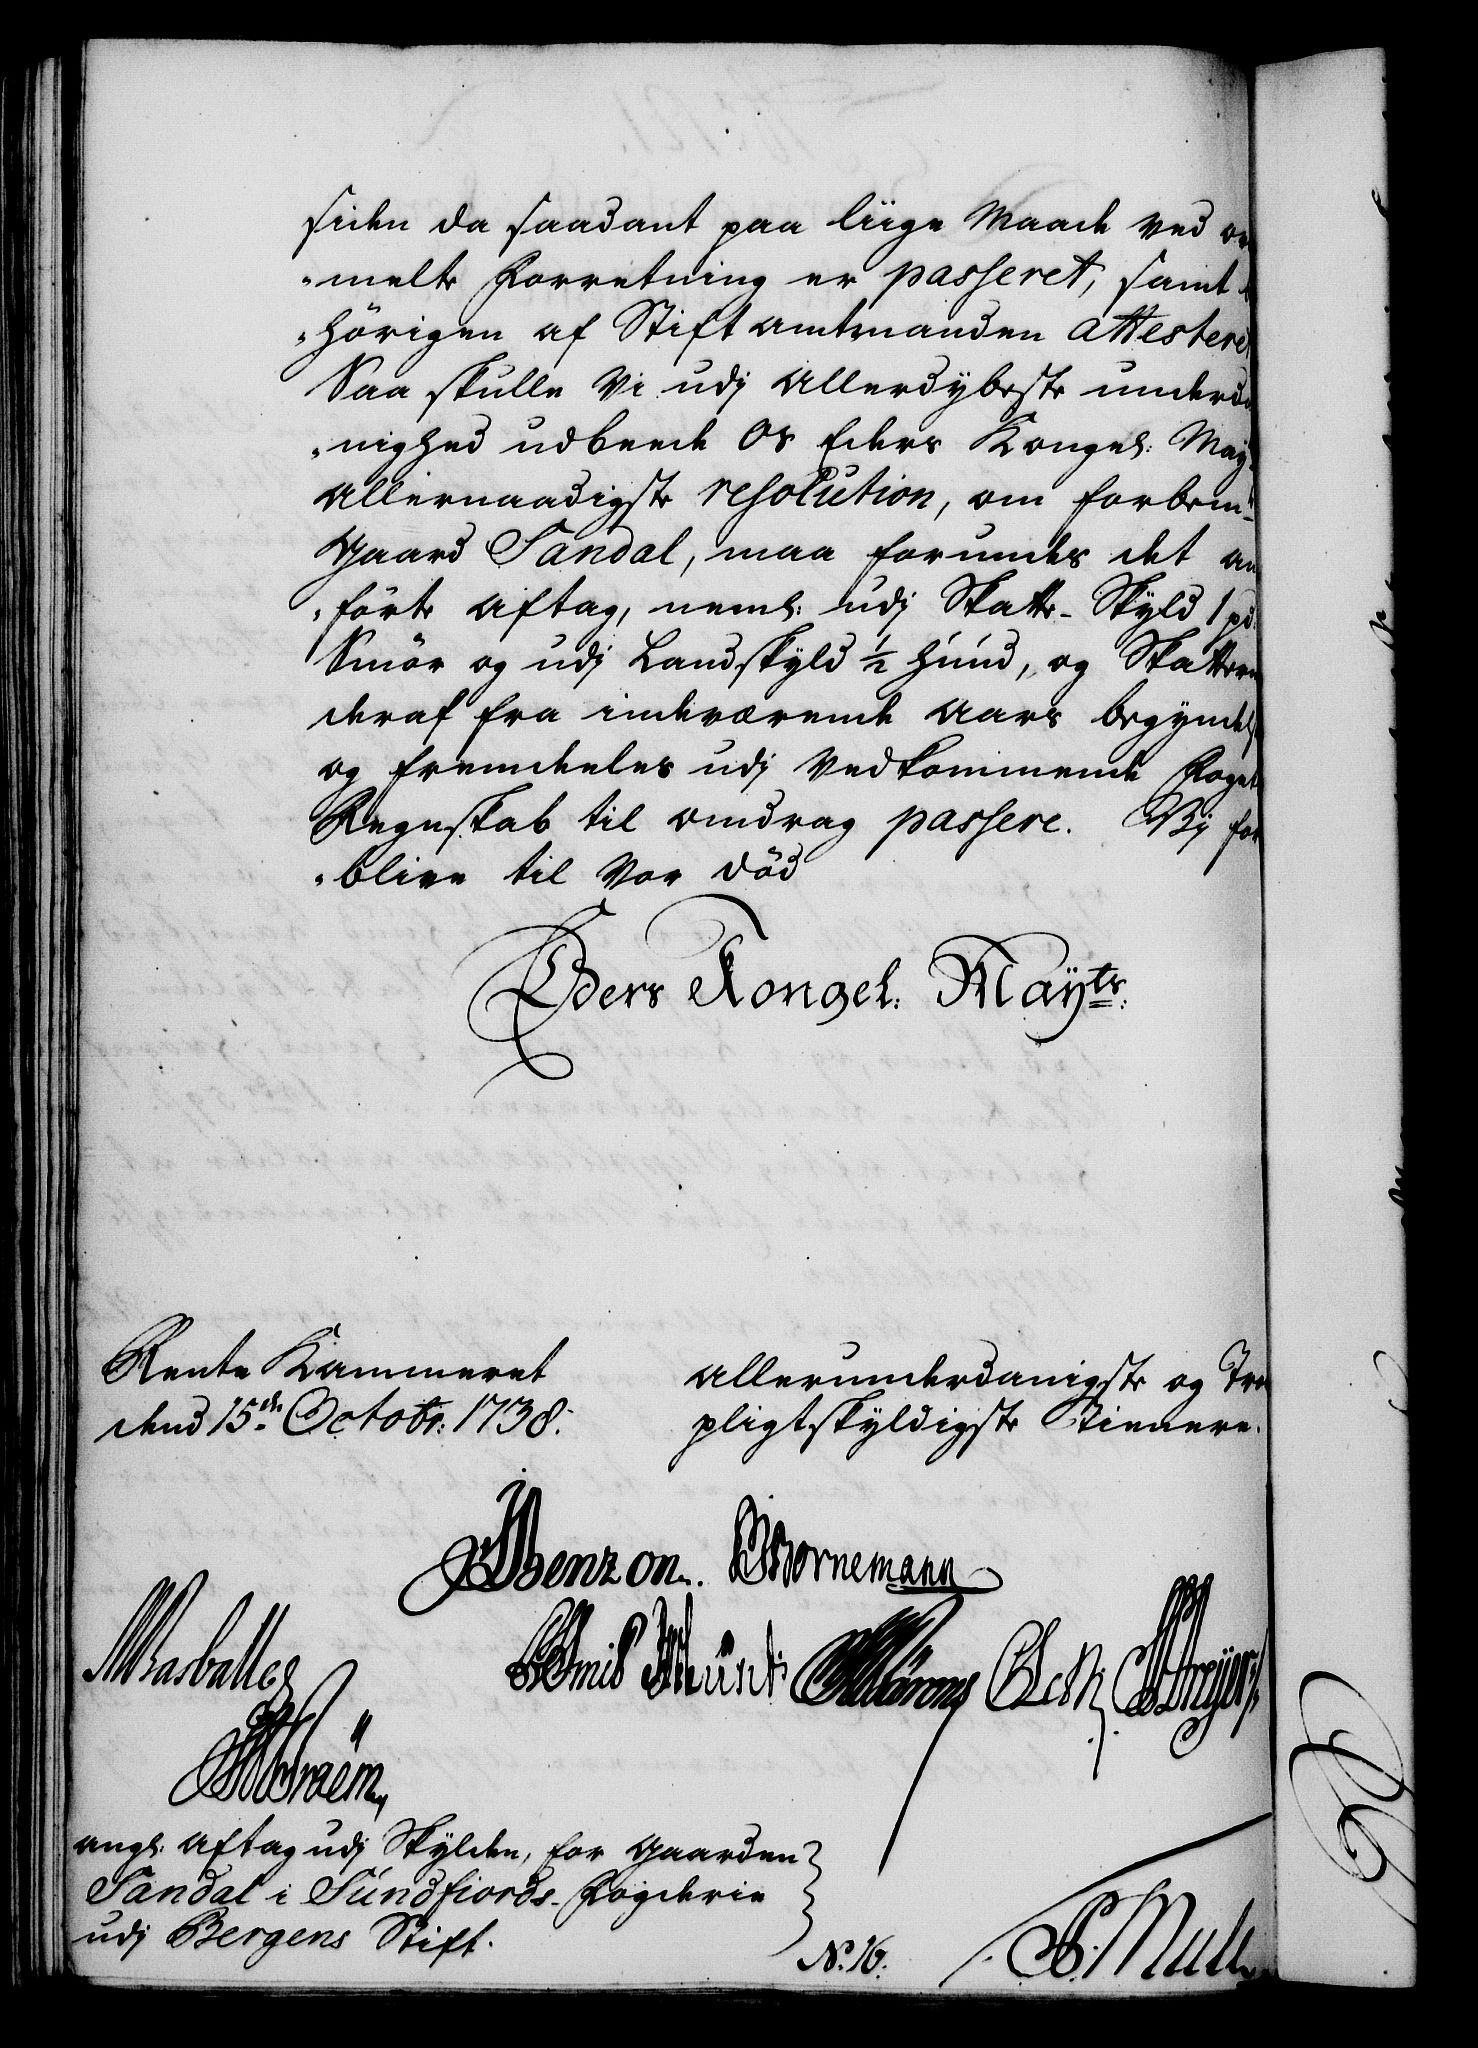 siden da saadant paa liige Maade ved
melte Forretning er passeret, samt
hörigen af Stiftamtmanden attesteret
Saa skulle Vi udj Allerdybeste underda
nighed udbeede Os Eders Kongel: May
Allernaadigste resolution, om forbem:
Gaard Sandal, maa forundes det an
förte Aftag, neml: udj Skatte-Skyld 1 pd:
Smör og udj Landskyld ½ Huud, og Skatterne
deraf fra indeværende Aars begyndelse
og fremdeeles udj Vedkommende Foget
Regnskab til Omdrag passere. Vij for
blive til Vor död
Eders Kongel: Mayts:
Rente Kammeret
dend 15de Octobr: 1738.
Allerunderdanigste og Troe
pligtskyldigste Tienere.
Benzon. Bornemann
Basballe
Smid
Schrøder
angl: Aftag udj Skylden, for Gaarden
Sandal i Sundfiords Fogderie
udj Bergens Stift.
No. 16.
Mull